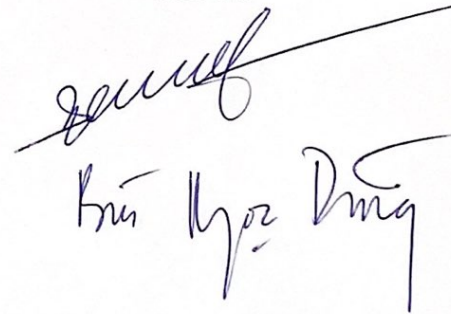 Bùi Ngọc Dũng